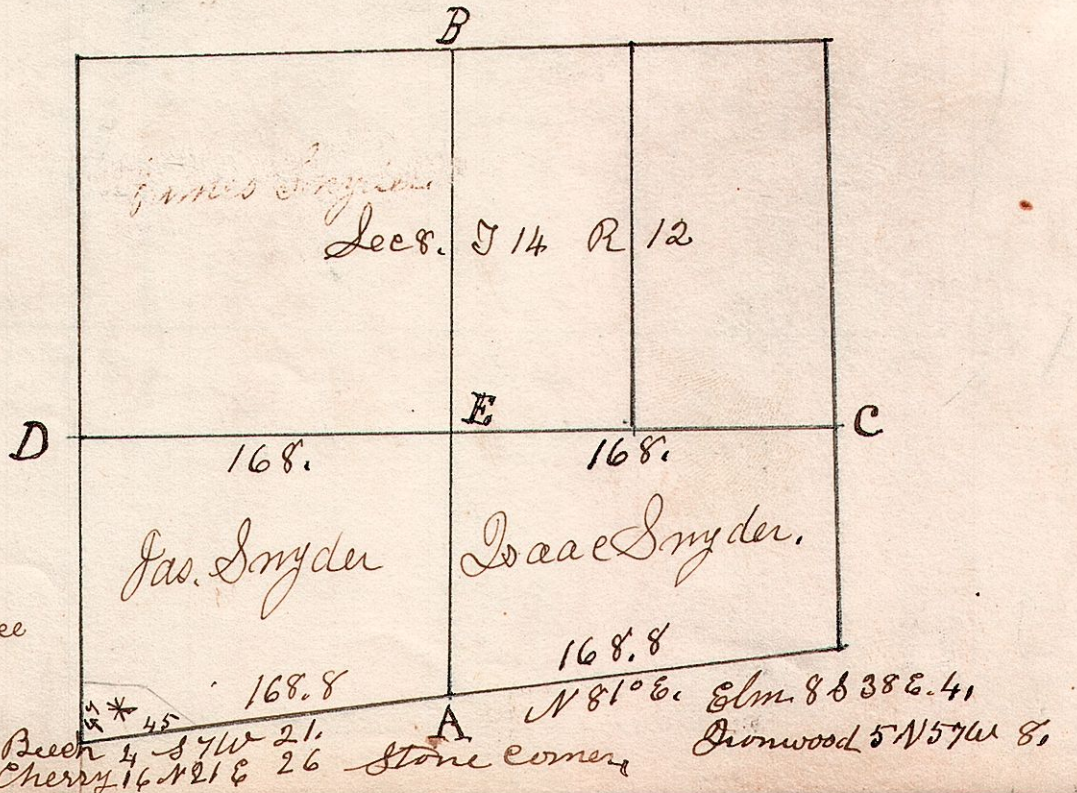 B
James Snyder
Sec 8. T 14 R 12
D E C
168. 168.
Jas. Snyder Isaac Snyder.
ee
168.8 168.8
45 45
A
N 81° E. Elm 8 S 38 E. 4.
Beech 4 S 7 W 21. Ironwood 5 N 57 W 8.
Cherry 16 N 21 E 26 Stone corner,